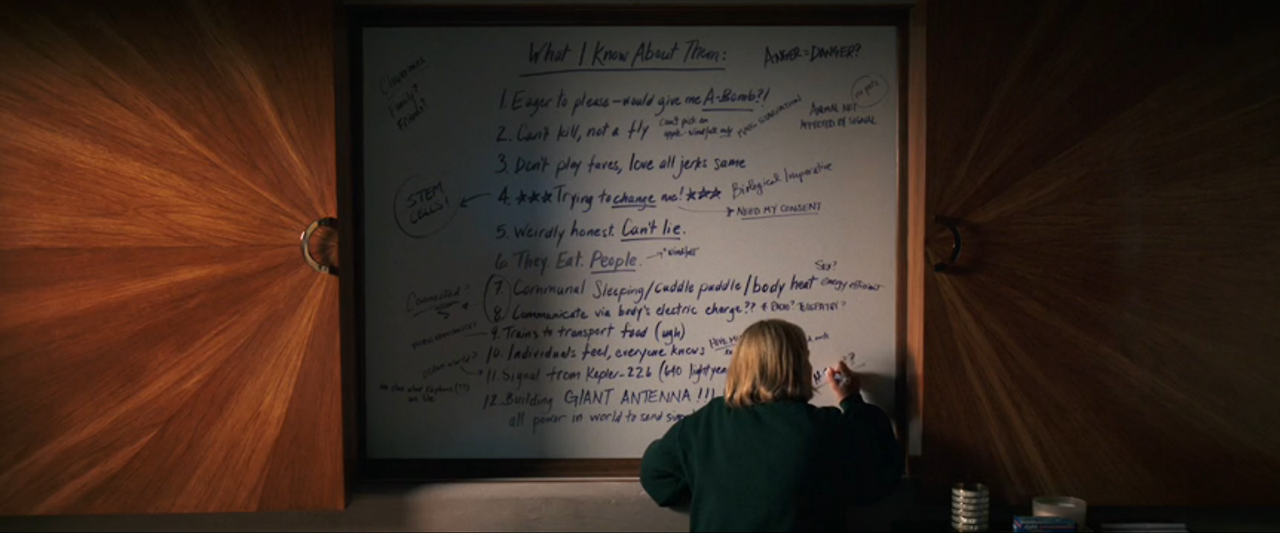 What I Know About Them:
ANGER = DANGER?
Family?
Friend?
1. Eager to please – would give me A-Bomb?!
AFFECTED BY SIGNAL
2. Can't kill, not a fly
can't pick an
apple - windfall only
3. Don't play faves, love all jerks same
STEM
CELLS!
4. ★★★ Trying to change me! ★★★
Biological Imperative
NEED MY CONSENT
5. Weirdly honest. Can't lie.
6. They. Eat. People.
windfall
7. Communal Sleeping/cuddle puddle/body heat
Sex?
energy efficient
Connected?
8. Communicate via body's electric charge??
RADIO? TELEPATHY?
9. Trains to transport food (ugh)
10. Individuals feel, everyone knows
11. Signal from Kepler-22b (640 lightyea
12. Building GIANT ANTENNA!!!
all power in world to send sig